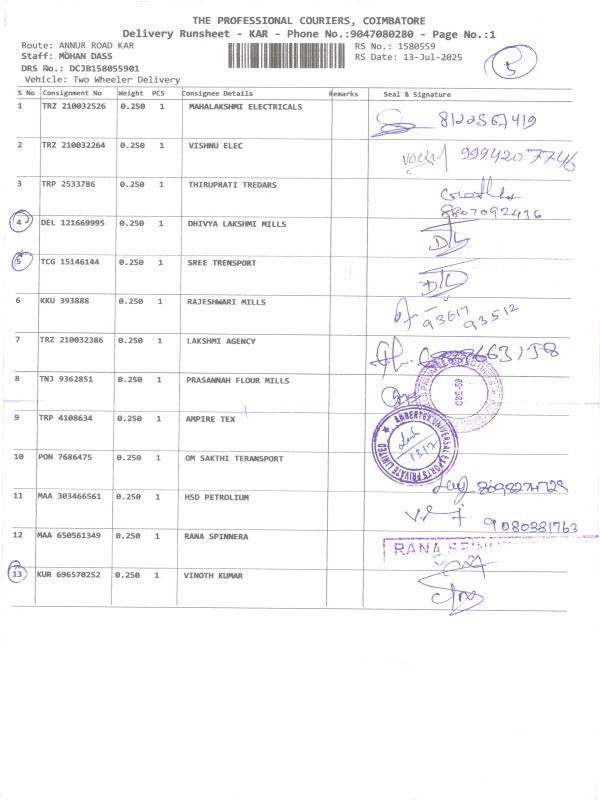 THE PROFESSIONAL COURIERS, COIMBATORE
Delivery Runsheet - KAR - Phone No.:9047080280 - Page No.:1
Route: ANNUR ROAD KAR RS No.: 1580559
Staff: MOHAN DASS RS Date: 13-Jul-2025
DRS No.: DCJB158055901
Vehicle: Two Wheeler Delivery
5
S No Consignment No Weight PCS Consignee Details Remarks Seal & Signature
1 TRZ 210032526 0.250 1 MAHALAKSHMI ELECTRICALS 8122567419
2 TRZ 210032264 0.250 1 VISHNU ELEC 9994207746
3 TRP 2533786 0.250 1 THIRUPRATI TREDARS
8807092436
4 DEL 121669995 0.250 1 DHIVYA LAKSHMI MILLS
5 TCG 15146144 0.250 1 SREE TRENSPORT
6 KKU 393888 0.250 1 RAJESHWARI MILLS 93617 93512
7 TRZ 210032386 0.250 1 LAKSHMI AGENCY
8 TNJ 9362851 0.250 1 PRASANNAH FLOUR MILLS
CBE-59
9 TRP 4108634 0.250 1 AMPIRE TEX
AMBERTEX UNIVERSAL EXPORTS PRIVATE LIMITED
13/7
10 PON 7686475 0.250 1 OM SAKTHI TERANSPORT
11 MAA 303466561 0.250 1 HSD PETROLIUM
9080381763
12 MAA 650561349 0.250 1 RANA SPINNERA
RANA
13 KUR 696570252 0.250 1 VINOTH KUMAR